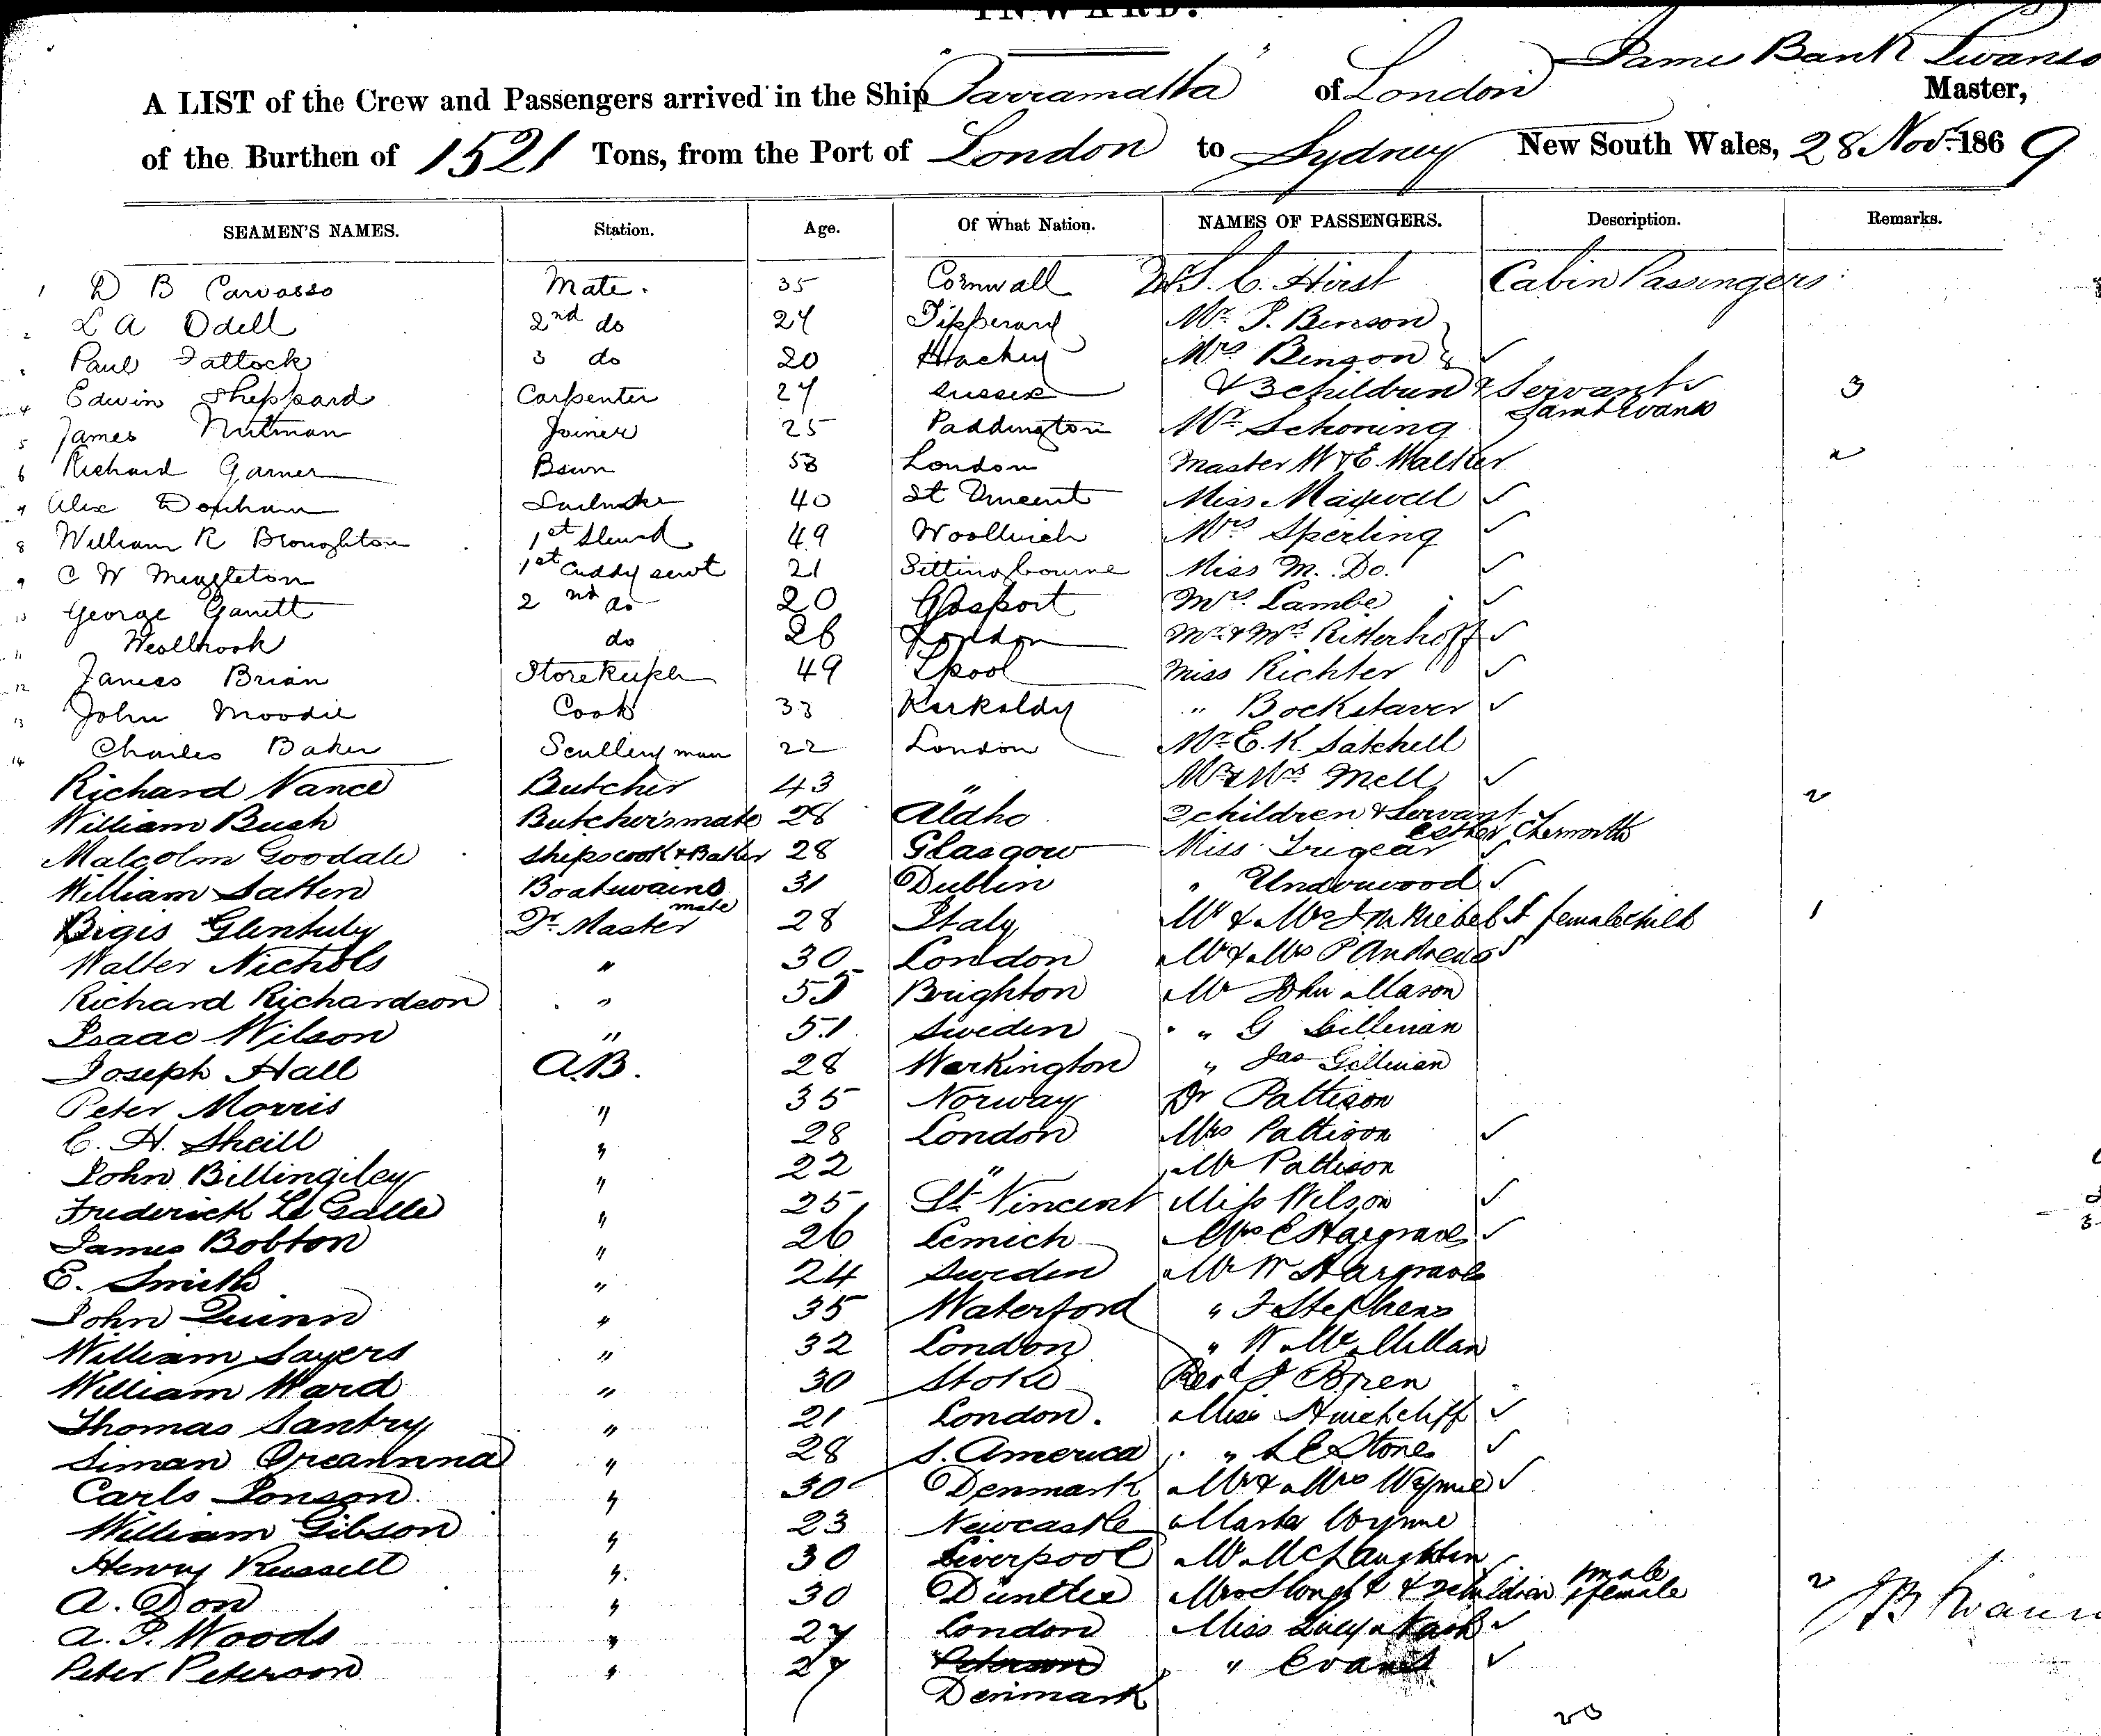 INWARD.
James Bank
A LIST of the Crew and Passengers arrived in the Ship "Parramatta" of London Master,
of the Burthen of 1521 Tons, from the Port of London to Sydney New South Wales, 28 Novr. 1869
SEAMEN'S NAMES. Station. Age. Of What Nation. NAMES OF PASSENGERS. Description. Remarks.
1 D B Carvosso Mate. 35 Cornwall Hirst Cabin Passengers
2 L A Odell 2nd do 24 Mr. Benson
Paul 3 do 20 Mrs Benson
4 Edwin Sheppard Carpenter 27 Sussex & 3 children & Servant 3
5 James Nutman Joiner 25 Paddington Mr Schoning
6 Richard Garner Bswn London Master W & E. Walker 2
7 Alex 40 St Vincent Miss Maxwell
8 William R Broughton 1st 49 Woolwich Mrs Sperling
9 C W 1st Cuddy servt 21 Sittingbourne Miss M. Do.
George Garrett 2nd do 20 Gosport Mrs. Lambe
11 Westbrook do 26 London Mr & Mrs Ritterhoff
12 James Brian Storekeeper 49 Lpool Miss Richter
13 John Moodie Cook 33 Kirkaldy " Bockstaver
14 Charles Baker Scullery man 22 London Mr E. K. Satchell
Richard Nance Butcher 43 " Mr & Mrs Mell
William Bush Butchers mate 28 2 children & Servant 2
Malcolm Goodale Ships cook & Baker 28 Glasgow Miss Trigear
William Boatswains mate 31 Dublin " Underwood
Qr. Master 28 Italy Mr & Mrs female child 1
Walter Nichols " 30 London Mr & Mrs P Andrews
Richard Richardson " Brighton Mr John Mason
Isaac Wilson " 51 Sweden " G
Joseph Hall A.B. 28 Workington " Jas
Peter Morris " 35 Norway Dr Pattison
C. H. Sheill " 28 London Mrs Pattison
John Billingsley " 22 " Mr Pattison
Frederick Le Galle " 25 St. Vincent Miss Wilson
James Bolton " 26 Mrs Hargrave
E. Smith " 24 Sweden Mr W Hargrave
John Quinn " 35 Waterford " F Stephens
William Sayers " 32 London " W. McMillan
William Ward " 30 Stoke Revd J OBrien
Thomas Santry " 21 London. Miss Hinchcliff
Siman " 28 S. America " Stone
Carls Jonson " 30 Denmark Mr & Mrs Wynne
William Gibson " 23 Newcastle Master Wynne
Henry Russell " 30 Liverpool Mr McLaughlin
A. Don " 30 Dundee Mrs & 2 children male female 2
A. P. Woods " 27 London Miss Nash
Peter Peterson " 27 Peterson " Evans
Denmark